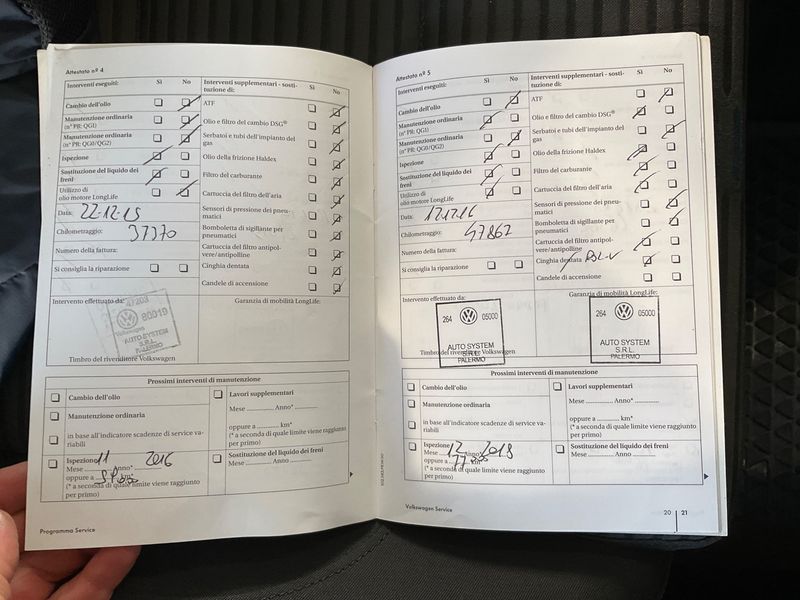 Attestato nº 4
Interventi eseguiti: Sì No
Cambio dell'olio
Manutenzione ordinaria
(nº PR: QG1)
Manutenzione ordinaria
(nº PR: QG0/QG2)
Ispezione
Sostituzione del liquido dei
freni
Utilizzo di
olio motore LongLife
Data: 22-12-15
Chilometraggio: 37370
Numero della fattura:
Si consiglia la riparazione
Interventi supplementari - sosti-
tuzione di: Sì No
ATF
Olio e filtro del cambio DSG®
Serbatoi e tubi dell'impianto del
gas
Olio della frizione Haldex
Filtro del carburante
Cartuccia del filtro dell'aria
Sensori di pressione dei pneu-
matici
Bomboletta di sigillante per
pneumatici
Cartuccia del filtro antipol-
vere/antipolline
Cinghia dentata
Candele di accensione
Intervento effettuato da:
Volkswagen
AUTO SYSTEM
S.R.L.
PALERMO
Timbro del rivenditore Volkswagen
Garanzia di mobilità LongLife:
Prossimi interventi di manutenzione
Cambio dell'olio
Manutenzione ordinaria
in base all'indicatore scadenze di service va-
riabili
Ispezione 11 2016
Mese ........ Anno*
oppure a
(* a seconda di quale limite viene raggiunto
per primo)
Lavori supplementari
Mese .......... Anno* ..........
oppure a .......... km*
(* a seconda di quale limite viene raggiunto
per primo)
Sostituzione del liquido dei freni
Mese .......... Anno ..........
Programma Service
Attestato nº 5
Interventi eseguiti: Sì No
Cambio dell'olio
Manutenzione ordinaria
(nº PR: QG1)
Manutenzione ordinaria
(nº PR: QG0/QG2)
Ispezione
Sostituzione del liquido dei
freni
Utilizzo di
olio motore LongLife
Data: 12.12.16
Chilometraggio: 47862
Numero della fattura:
Si consiglia la riparazione
Interventi supplementari - sosti-
tuzione di: Sì No
ATF
Olio e filtro del cambio DSG®
Serbatoi e tubi dell'impianto del
gas
Olio della frizione Haldex
Filtro del carburante
Cartuccia del filtro dell'aria
Sensori di pressione dei pneu-
matici
Bomboletta di sigillante per
pneumatici
Cartuccia del filtro antipol-
vere/antipolline
Cinghia dentata
Candele di accensione
Intervento effettuato da:
264 05000
AUTO SYSTEM
S.R.L.
PALERMO
Timbro del rivenditore Volkswagen
Garanzia di mobilità LongLife:
264 05000
AUTO SYSTEM
S.R.L.
PALERMO
Prossimi interventi di manutenzione
Cambio dell'olio
Manutenzione ordinaria
in base all'indicatore scadenze di service va-
riabili
Ispezione 12 2018
Mese ........ Anno*
oppure a
(* a seconda di quale limite viene raggiunto
per primo)
Lavori supplementari
Mese .......... Anno* ..........
oppure a .......... km*
(* a seconda di quale limite viene raggiunto
per primo)
Sostituzione del liquido dei freni
Mese .......... Anno ..........
Volkswagen Service
20 21